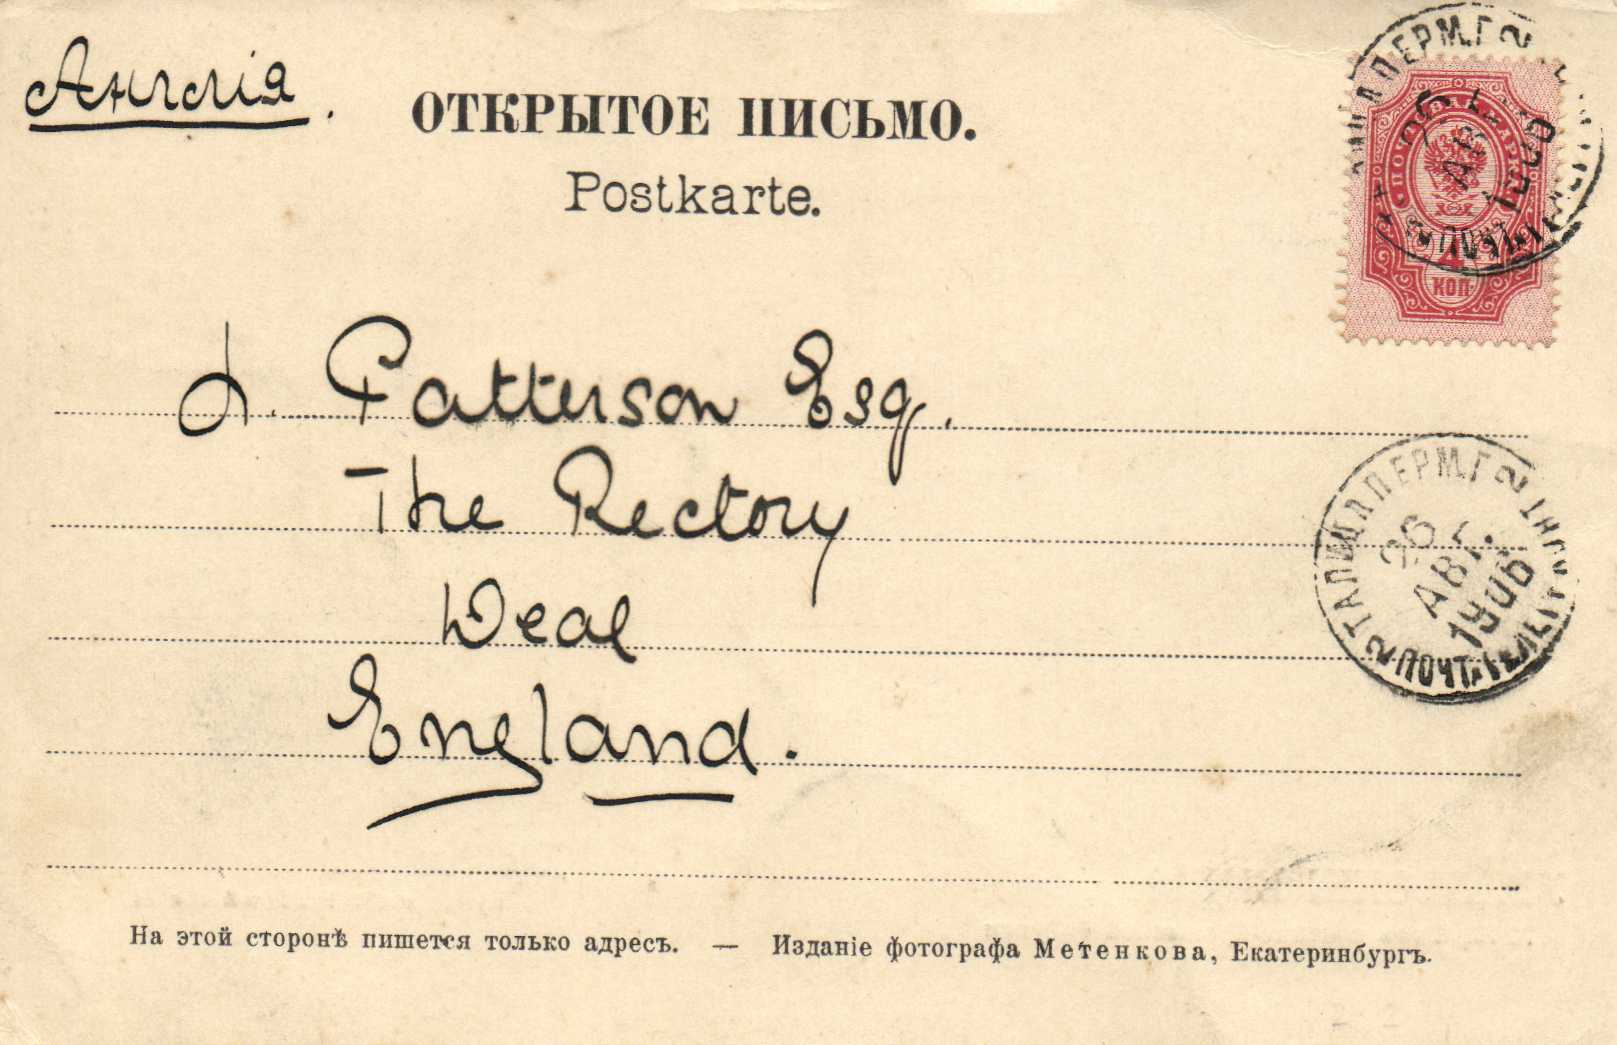 Англія.
ОТКРЫТОЕ ПИСЬМО.
Postkarte.
ПОЧТОВАЯ МАРКА
4
КОП.
J. Patterson Esq.
The Rectory
Deal
England.
ТАЛИЦ. П. ПЕРМ. Г.
26
АВГ.
1906
ПОЧТ. ТЕЛ.
На этой сторонѣ пишется только адресъ. — Изданіе фотографа Метенкова, Екатеринбургъ.